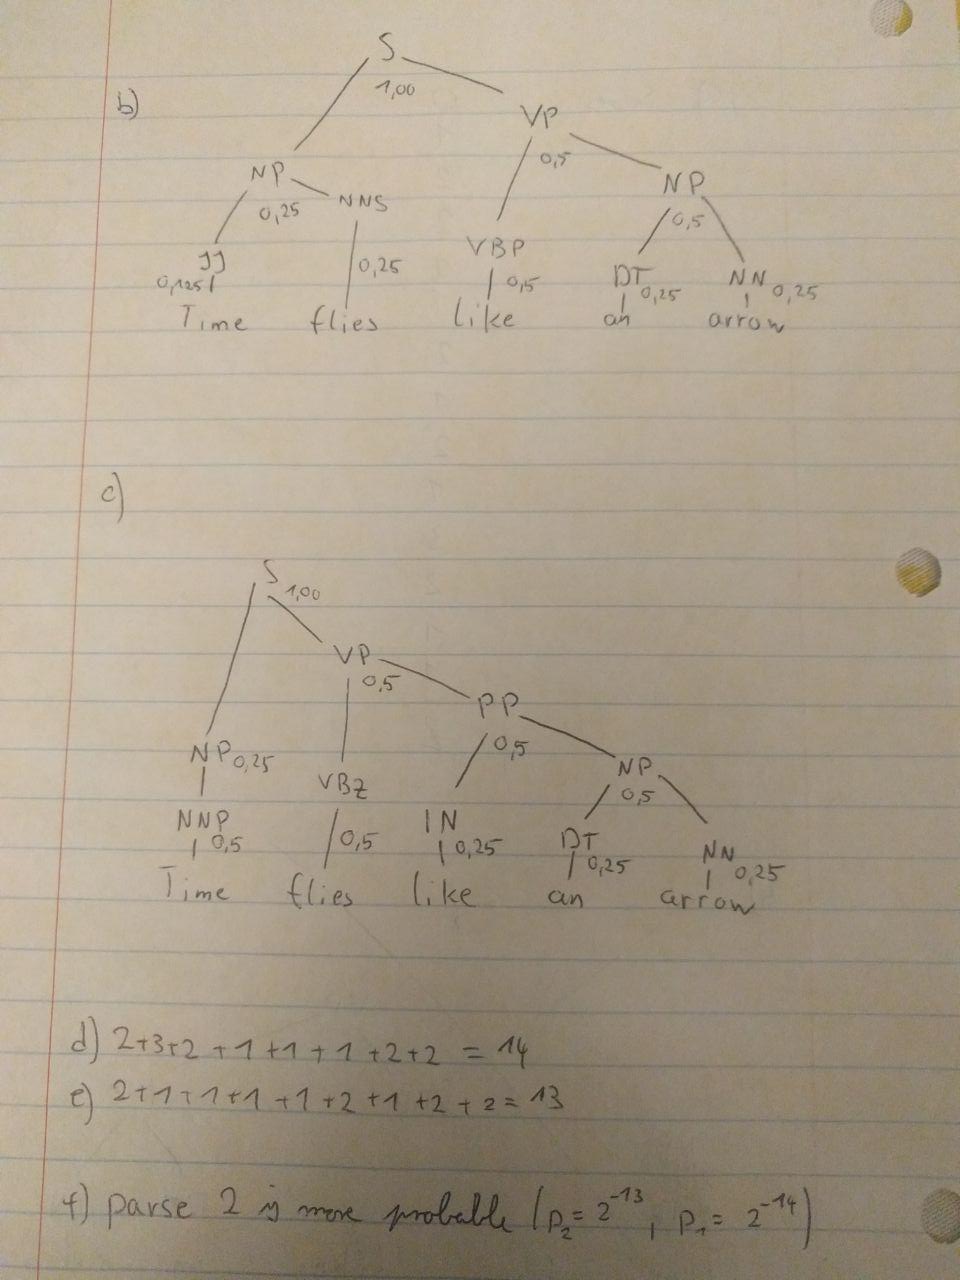 b)
S
1,00
VP
0,5
NP
0,25
NNS
NP
0,5
JJ
0,125
0,25
VBP
0,5
DT
0,25
NN
0,25
Time flies like an arrow
c)
S
1,00
VP
0,5
PP
0,5
NP 0,25
NP
0,5
VBZ
NNP
0,5
0,5
IN
0,25
DT
0,25
NN
0,25
Time flies like an arrow
d) 2+3+2+1+1+1+2+2 = 14
e) 2+1+1+1+1+2+1+2+2= 13
f) parse 2 is more probable (p₂= 2⁻¹³, p₁= 2⁻¹⁴)